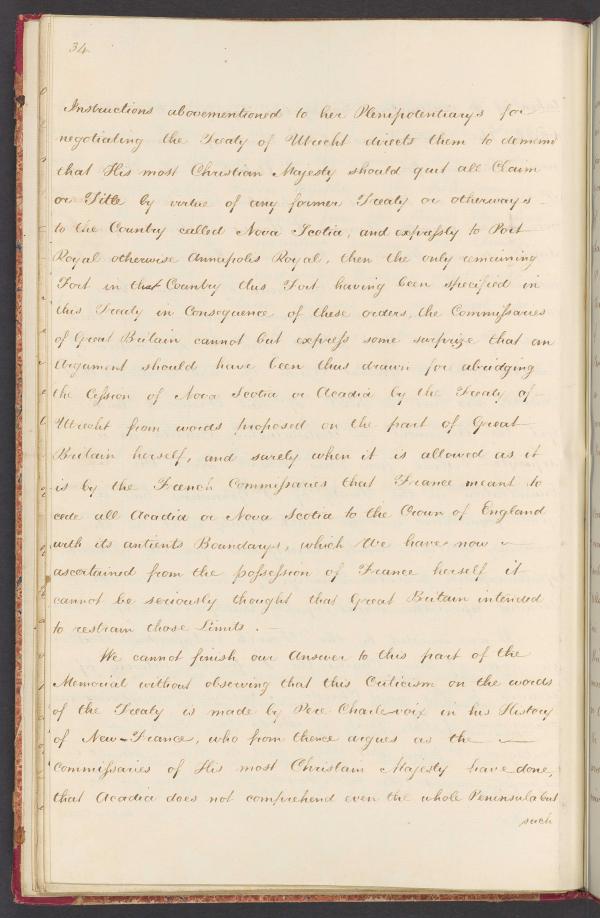 34
Instructions abovementioned to her Plenipotentiarys for
negotiating the Treaty of Utrecht directs them to demand
that His most Christian Majesty should quit all Claim
or Title by virtue of any former Treaty or otherways
to the Country called Nova Scotia, and expressly to Port
Royal otherwise Annapolis Royal, then the only remaining
Fort in that Country this Fort having been specified in
this Treaty in Consequence of these orders, the Commissaries
of Great Britain cannot but express some surprize that an
Argument should have been thus drawn for abridging
the Cession of Nova Scotia or Acadia by the Treaty of
Utrecht from words proposed on the part of Great
Britain herself, and surely when it is allowed as it
is by the French Commissaries that France meant to
cede all Acadia or Nova Scotia to the Crown of England
with its antients Boundarys, which We have now
ascertained from the possession of France herself it
cannot be seriously thought that Great Britain intended
to restrain those Limits.
We cannot finish our Answer to this part of the
Memorial without observing that this Criticism on the words
of the Treaty is made by Pere Charlevoix in his History
of New-France, who from thence argues as the
Commissaries of His most Christain Majesty have done,
that Acadia does not comprehend even the whole Peninsula but
such